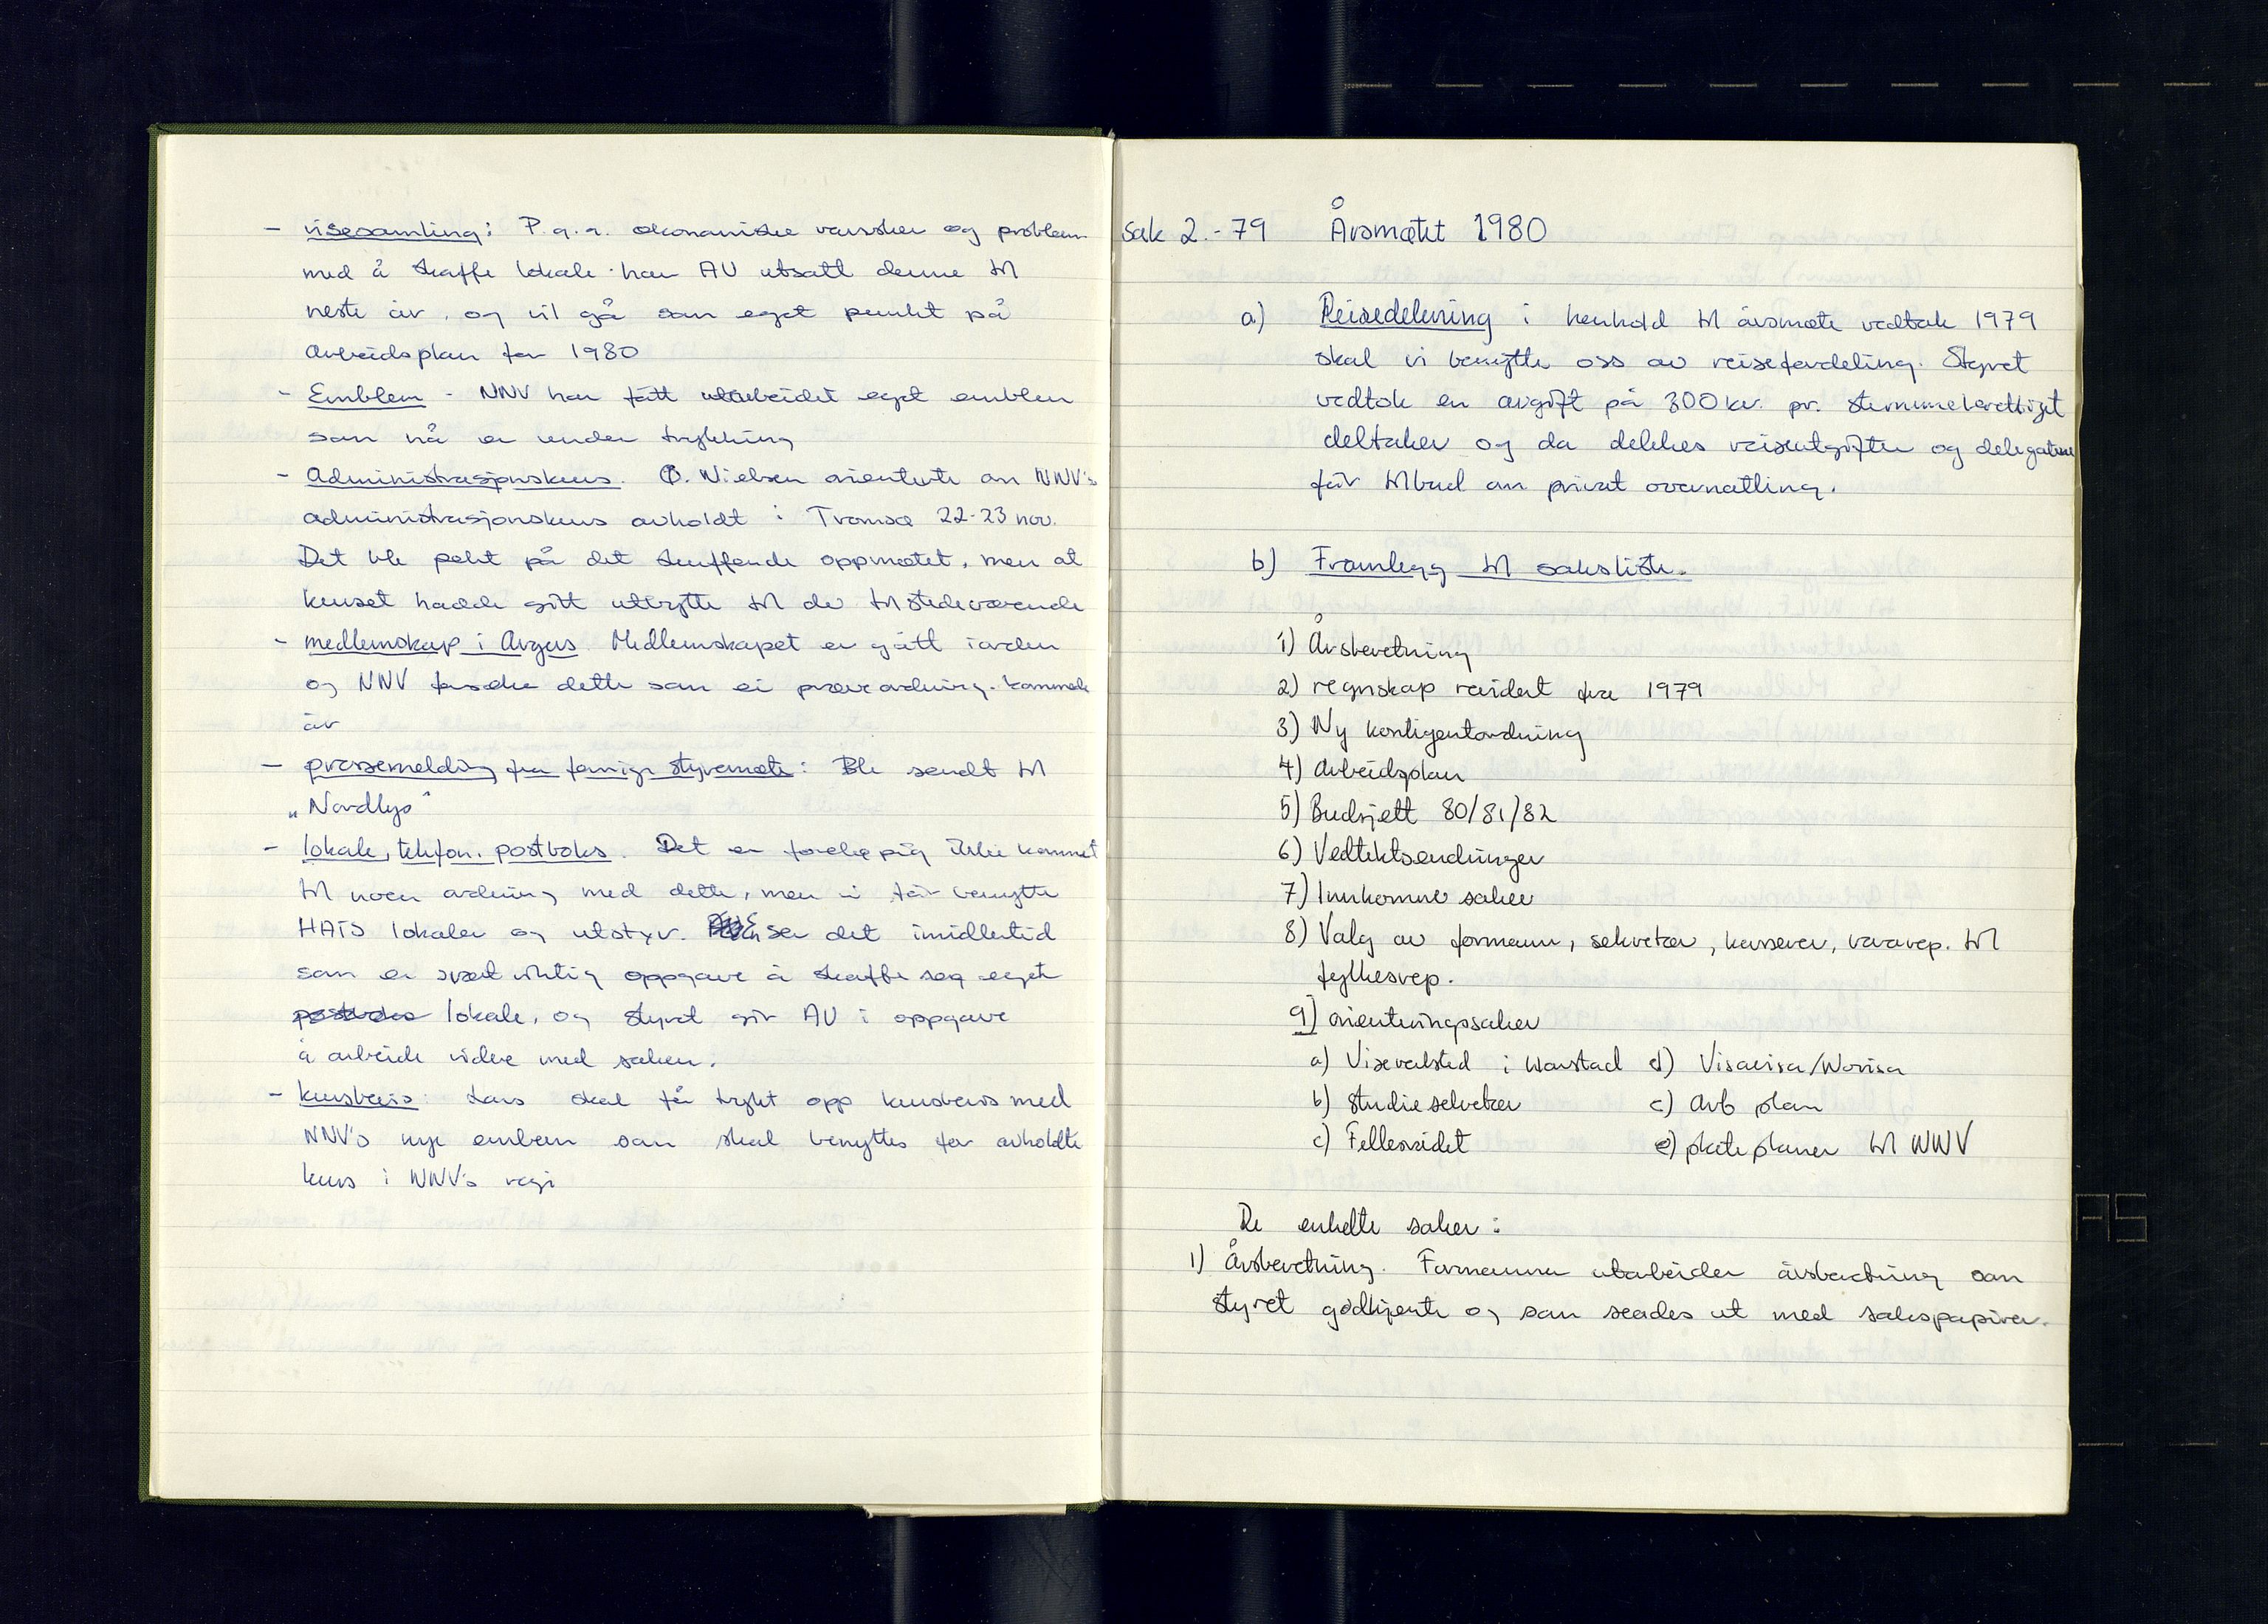 - visesamling: P.g.a. økonomiske vansker og problem
med å skaffe lokale har AU utsatt denne til
neste år, og vil gå som eget punkt på
Arbeidsplan for 1980
- Emblem - NNV har fått utarbeidet eget emblem
som nå er under trykking
- Administrasjonskurs. Ø. Nielsen orienterte om NNV's
administrasjonskurs avholdt i Tromsø 22-23 nov.
Det ble pekt på det skuffende oppmøtet, men at
kurset hadde gitt utbytte til de tilstedeværende
- medlemskap i Argus. Medlemskapet er gått i orden
og NNV forsøke dette som ei prøveordning. kommende
år
- pressemelding fra forrige styremøte: Ble sendt til
„Nordlys"
- lokale, telefon, postboks. Det er foreløpig ikke kommet
til noen ordning med dette, men vi får benytte
HATS lokaler og utstyr. ser det imidlertid
som en svært viktig oppgave å skaffe seg eget
postboks lokale, og styret gir AU i oppgave
å arbeide videre med saken.
- kursbevis: Lars skal få trykt opp kursbevis med
NNV's nye emblem som skal benyttes for avholdte
kurs i NNV's regi
Sak 2.-79 Årsmøtet 1980
a) Reisedekning i henhold til årsmøte vedtak 1979
skal vi benytte oss av reisefordeling. Styret
vedtok en avgift på 300 kr. pr. stemmeberettiget
deltaker og da dekkes reiseutgifter og delegatene
får tilbud om privat overnatting.
b) Framlegg til saksliste.
1) Årsberetning
2) regnskap revidert fra 1979
3) Ny kontigentordning
4) Arbeidsplan
5) Budsjett 80/81/82
6) Vedtektsendringer
7) Innkomne saker
8) Valg av formann, sekretær, kasserer, vararep. til
fylkesrep.
9) orienteringssaker
a) Viseverksted i Harstad d) Visavisa/Norvisa
b) Studiesekretær c) Arb plan
c) Fellesrådet e) plateplaner til NNV
De enkelte saker:
1) Årsberetning. Formannen utarbeider årsberetning som
styret godkjente og som sendes ut med sakspapirer.